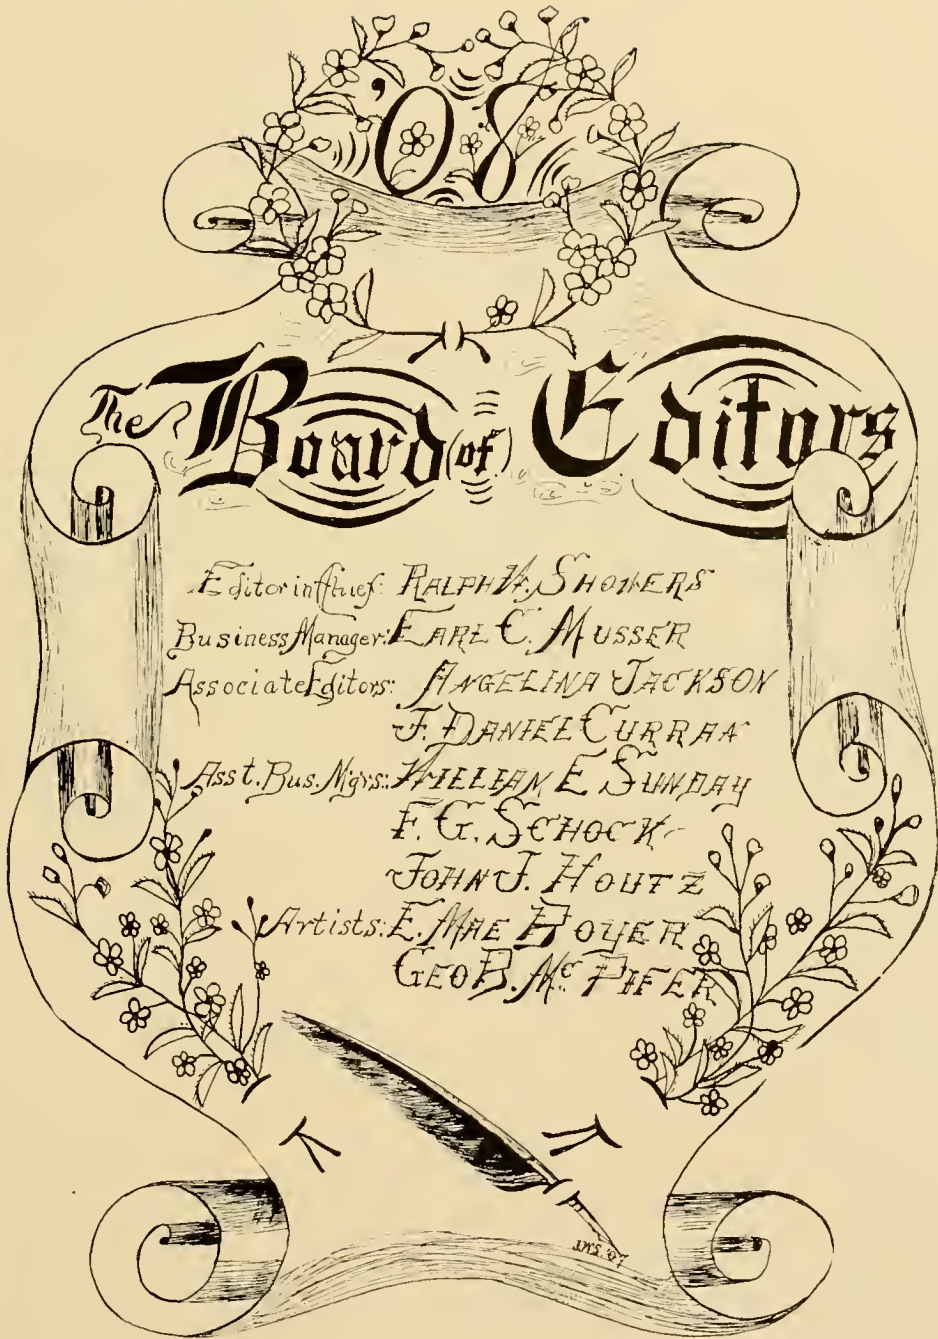 '08
The Board (of) Editors
Editor in Chief: RALPH W. SHOWERS
Business Manager: EARL C. MUSSER
Associate Editors: ANGELINA JACKSON
J. DANIEL CURRAN
Asst. Bus. Mgrs.: WILLIAM E SUNDAY
F. G. SCHOCK
JOHN J. HOUTZ
Artists: E. MAE BOYER
GEO B. Mc PIFER
'07